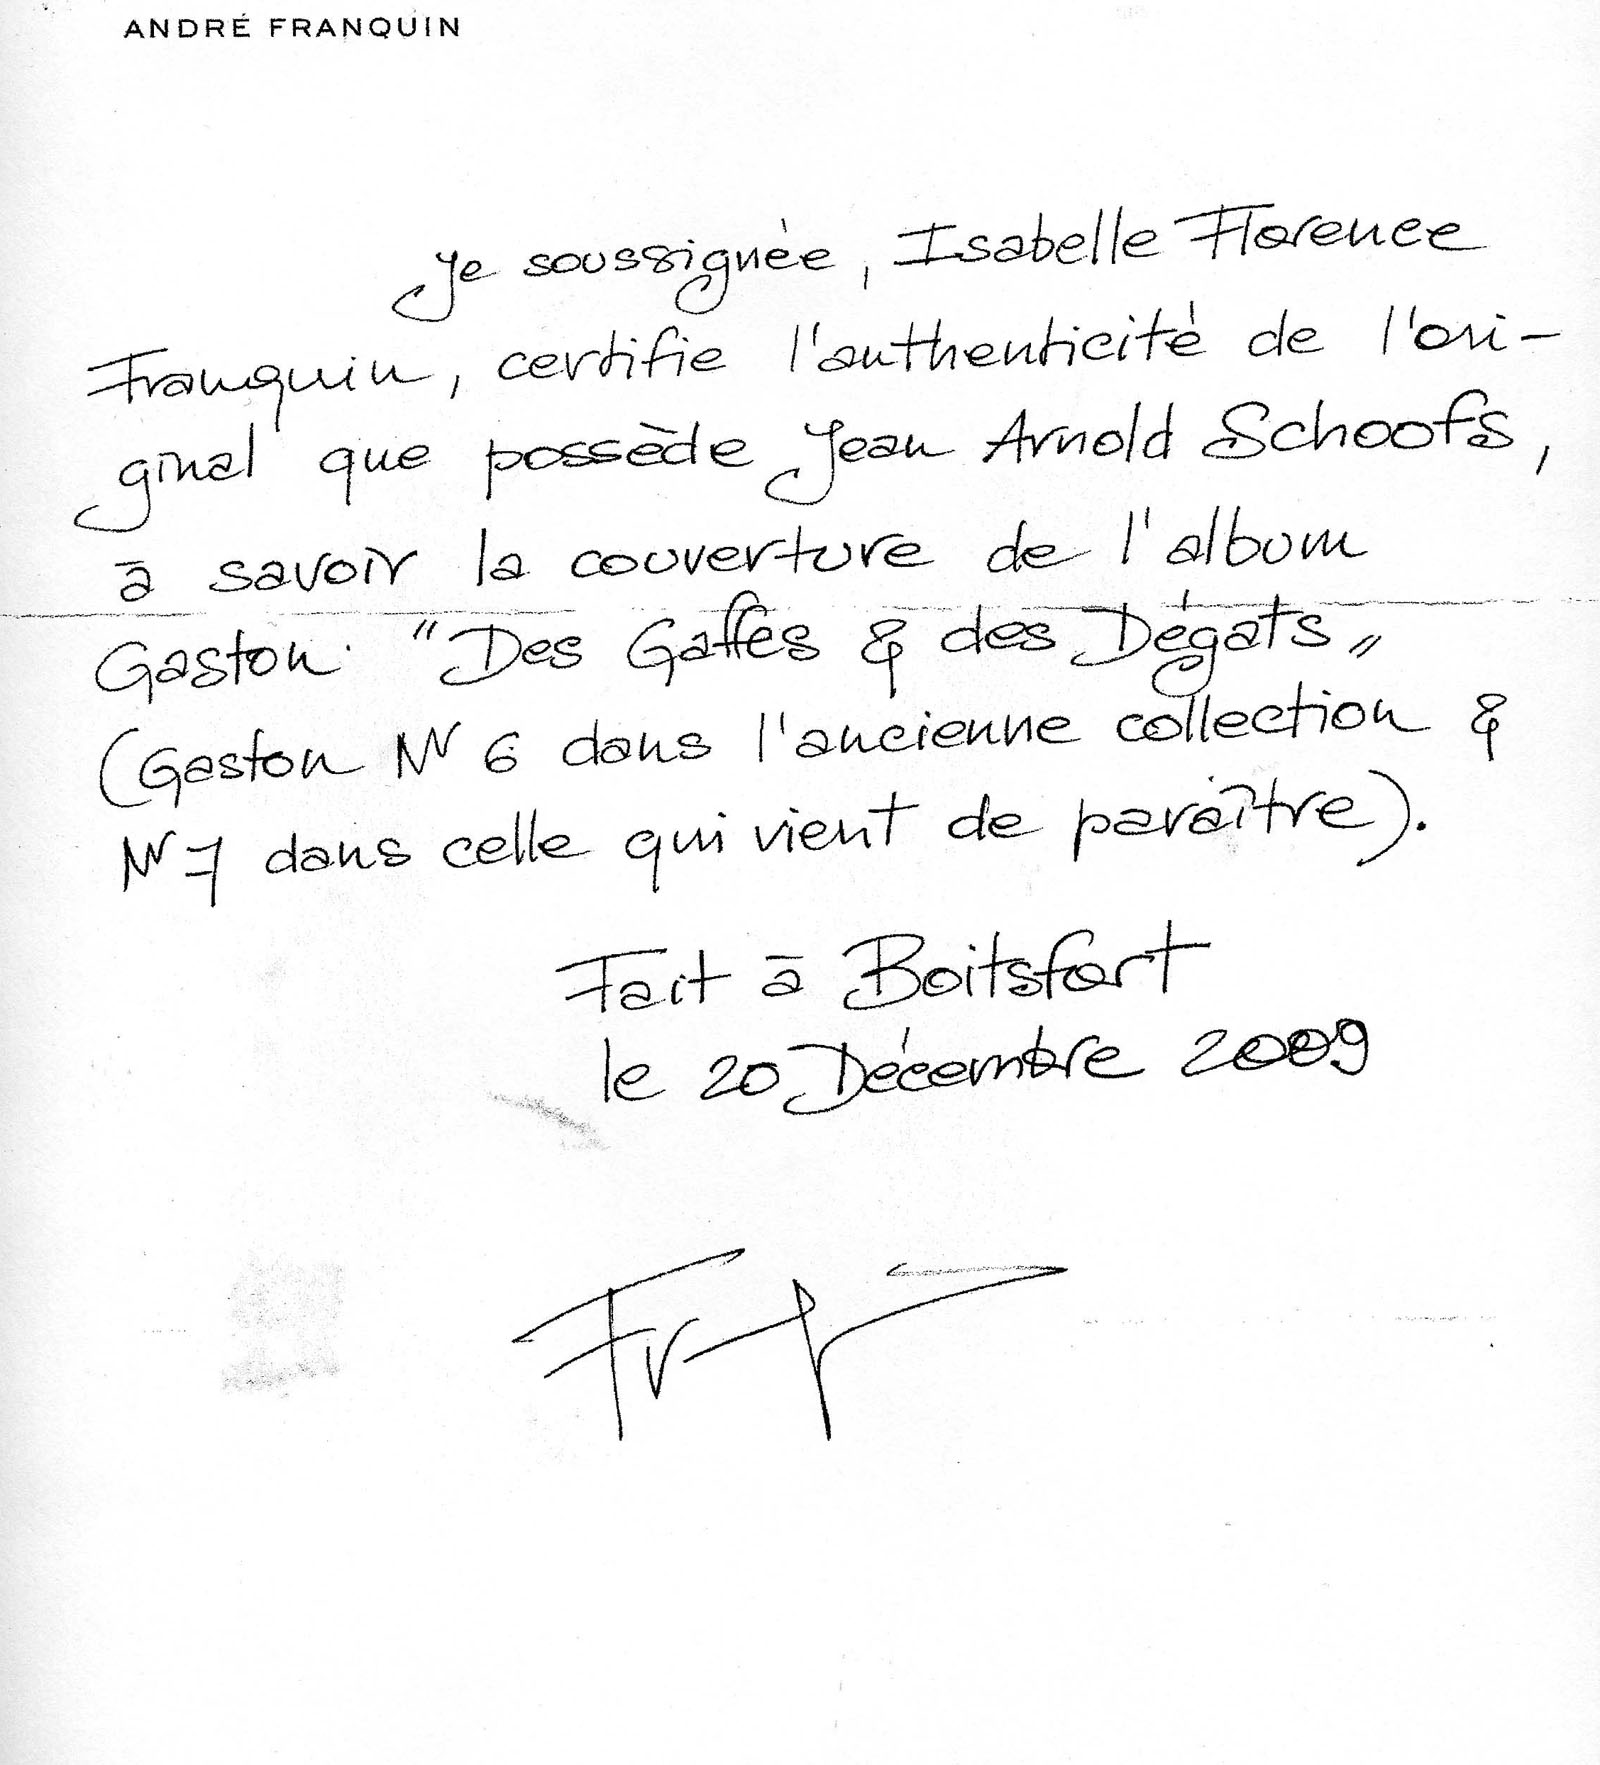 ANDRÉ FRANQUIN
je soussignée, Isabelle Florence
Franquin, certifie l'authenticité de l'ori-
ginal que possède Jean Arnold Schoofs,
à savoir la couverture de l'album
Gaston "Des Gaffes & des Dégats"
(Gaston Nr 6 dans l'ancienne collection &
Nr 7 dans celle qui vient de paraître).
Fait à Boitsfort
le 20 Décembre 2009